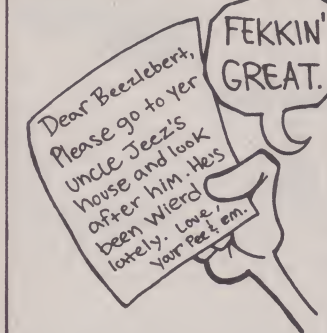 Dear Beezlebert,
Please go to yer
uncle Jeez's
house and look
after him. He's
been Wierd
lately. Love,
your Pee & em.
FEKKIN'
GREAT.